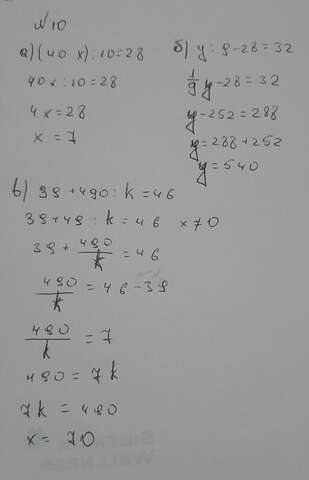 №10
а) (40 х) : 10 = 28
40х : 10 = 28
4х = 28
х = 7
б) у : 9 - 28 = 32
1/9 у - 28 = 32
у - 252 = 288
у = 288 + 252
у = 540
в) 39 + 490 : k = 46
39 + 49 : k = 46 х ≠ 0
39 + 490/k = 46
490/k = 46 - 39
490/k = 7
490 = 7k
7k = 490
х = 70